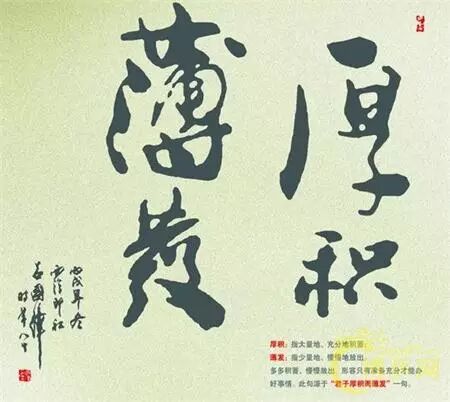 厚积
薄發
丙戌年冬
西泠印社
时年八十
厚积：指大量地、充分地积蓄；
薄发：指少量地、慢慢地放出。
多多积蓄，慢慢放出，形容只有准备充分才能办
好事情。此句源于“君子厚积而薄发”一句。